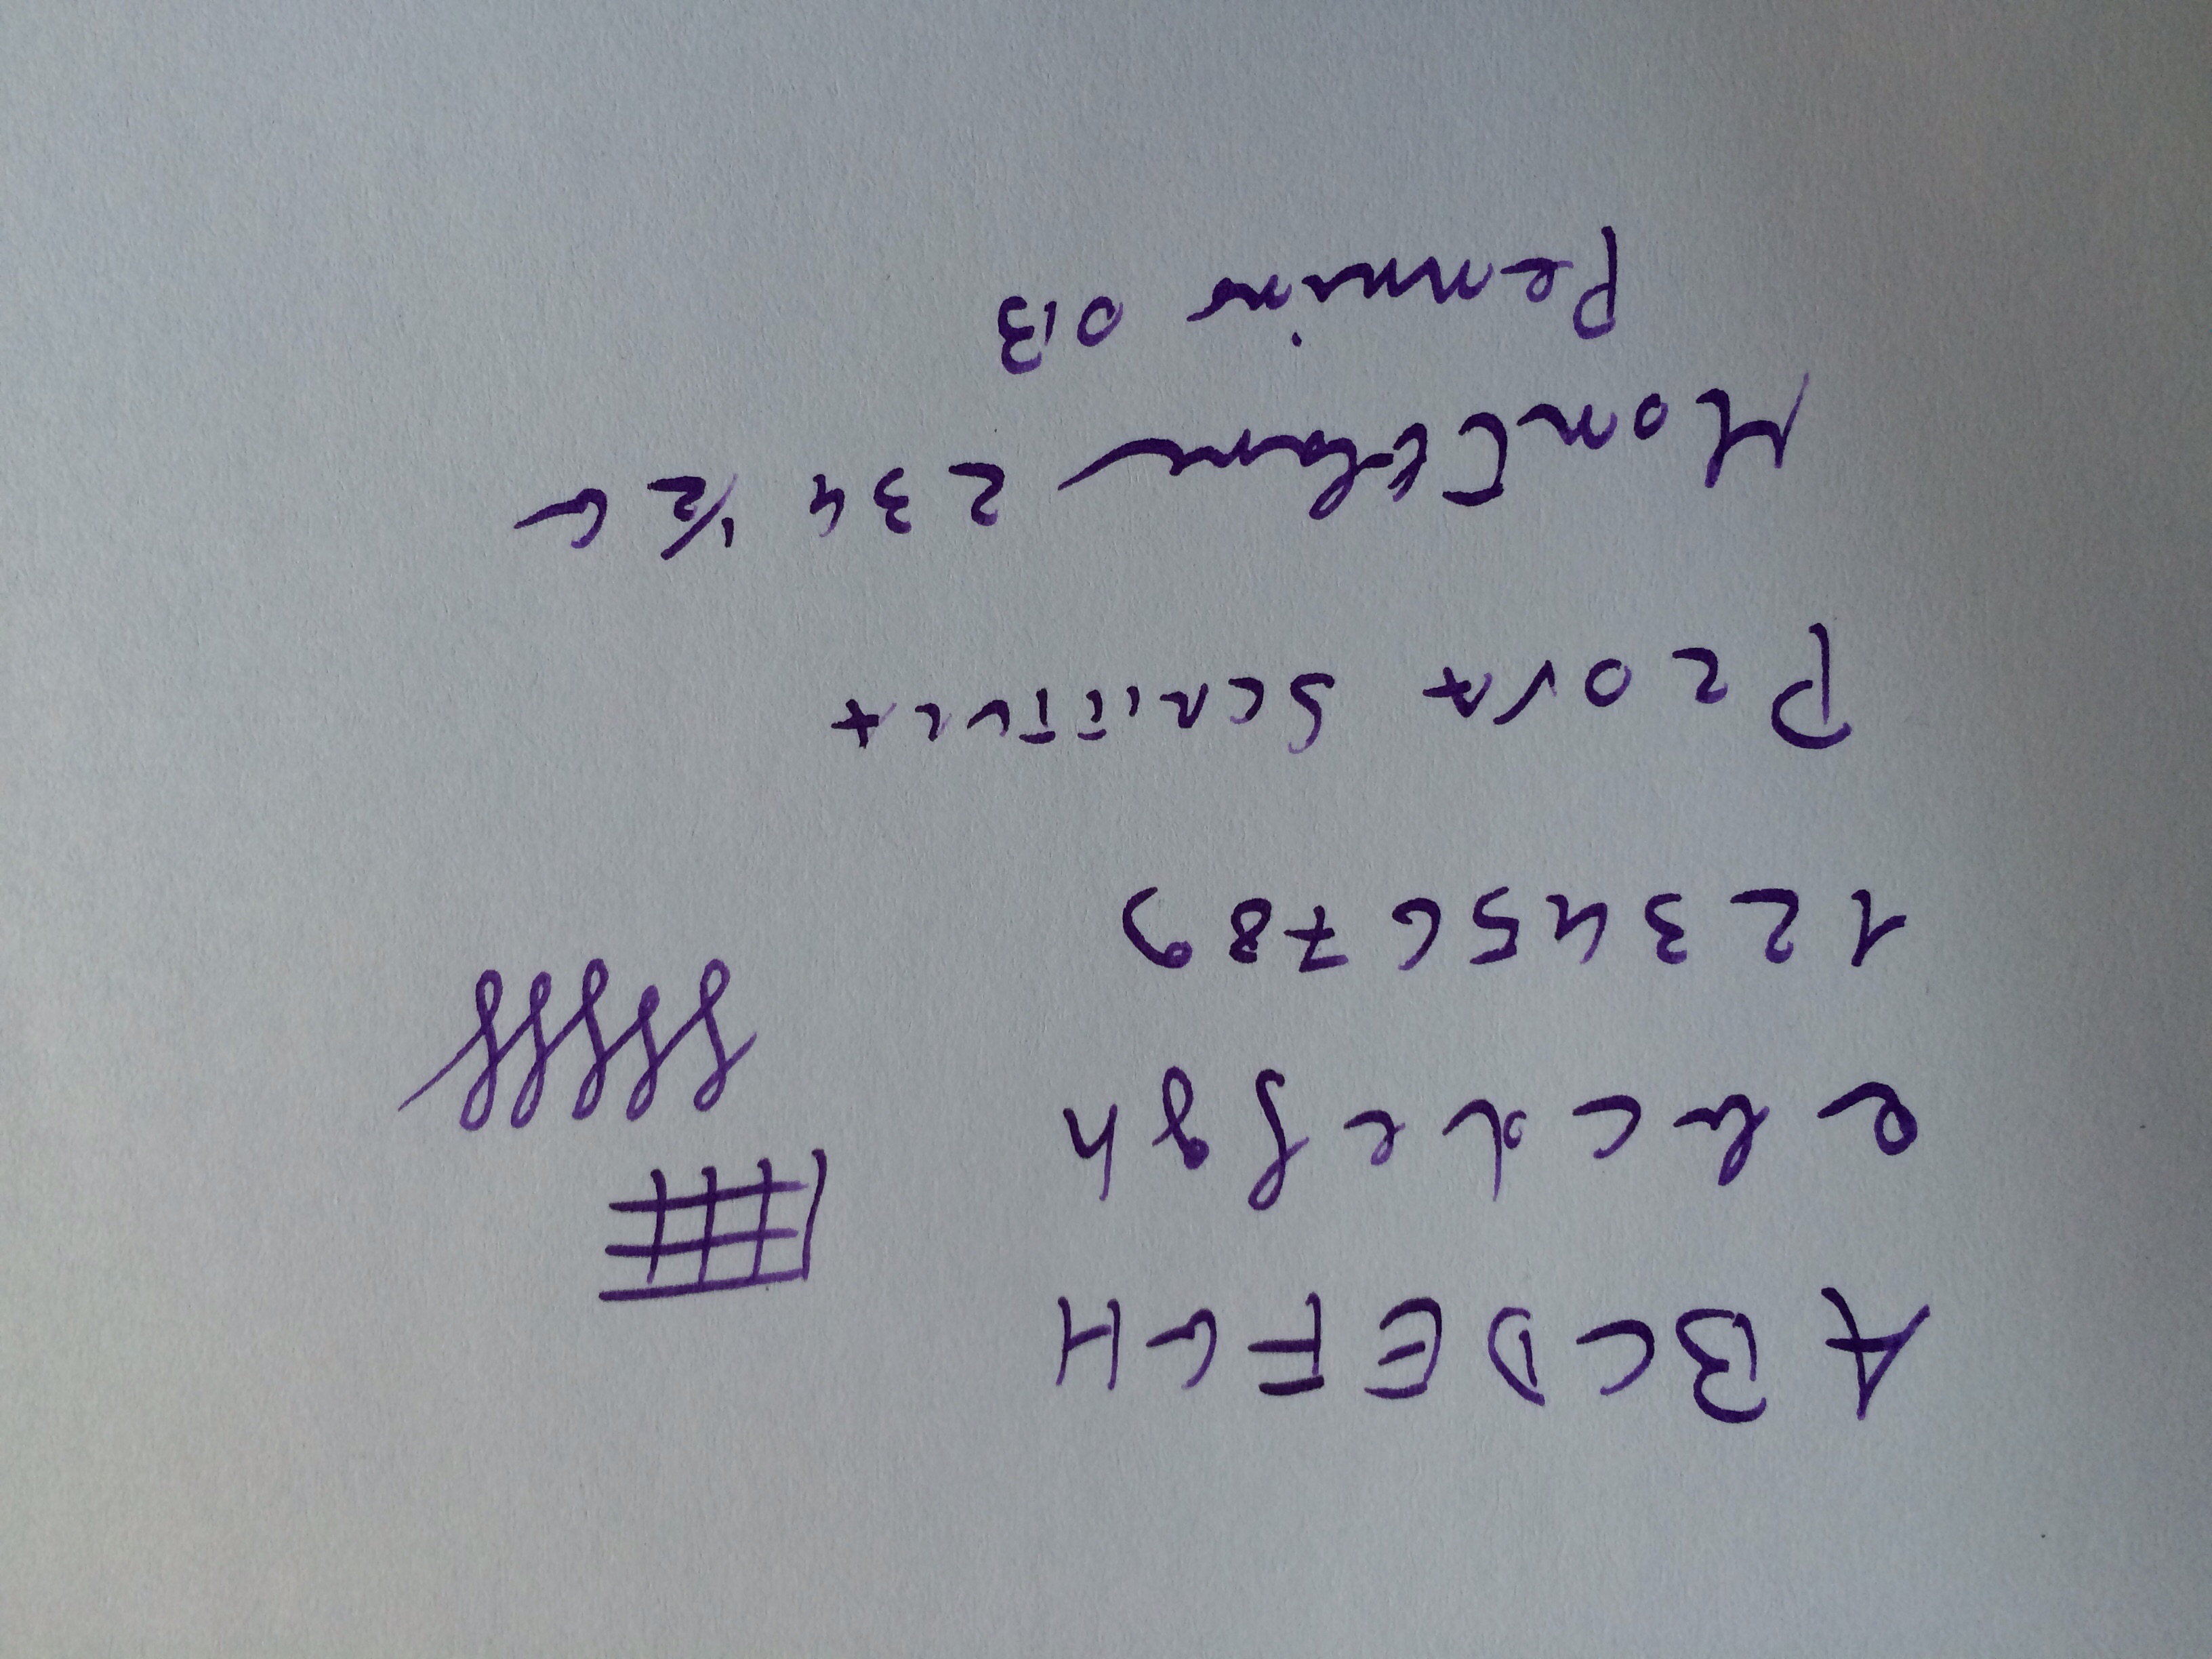 A B C D E F G H
a b c d e f g h
1 2 3 4 5 6 7 8 9
PROVA SCRITTURA
MonTblanc 234 1/2 G
Pennino OB